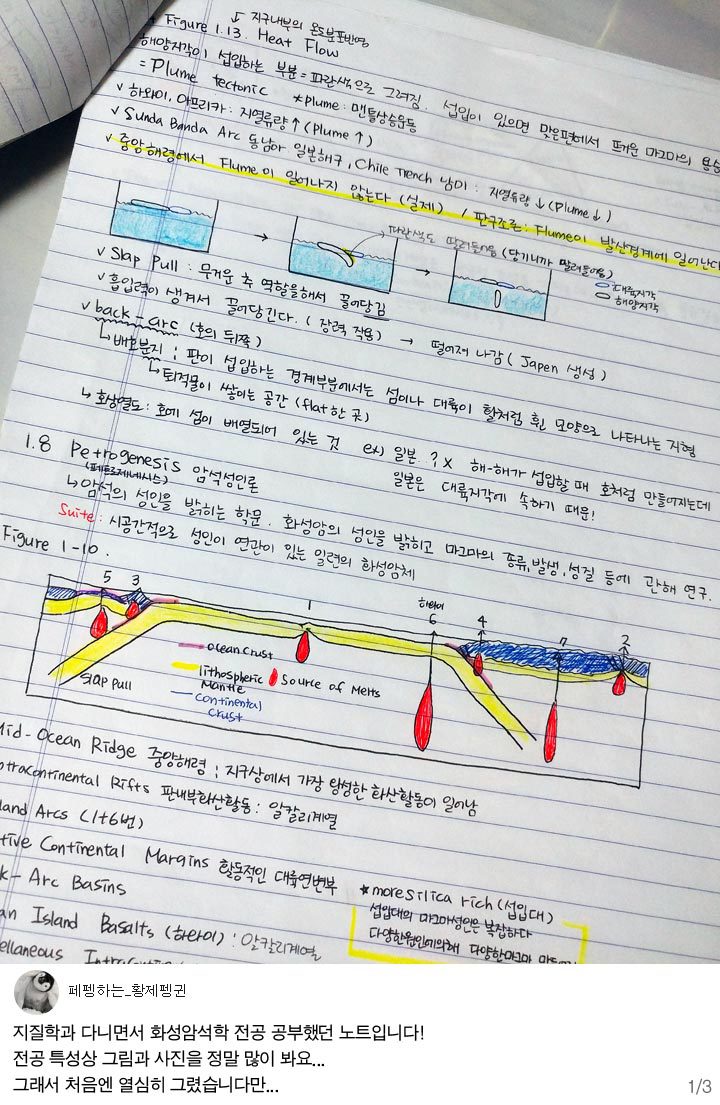 ↓ 지구내부의 온도분포반영
* Figure 1.13. Heat Flow
해양지각이 섭입하는 부분 = 파란색으로 그려짐. 섭입이 있으면 맞은편에서 뜨거운 마그마의 용승
= Plume tectonic *plume : 맨틀상승운동
v 하와이, 아프리카 : 지열류량↑ (Plume↑)
v Sunda Banda Arc 동남아 일본해구, Chile Trench 남미 : 지열류량↓ (Plume↓)
v 중앙해령에서 Flume이 일어나지 않는다 (실제) / 판구조론 : Flume이 발산경계에 일어난다
파란색도 딸려들어옴 (당기니까 말려들어옴)
대륙지각
해양지각
v Slap Pull : 무거운 추 역할을해서 끌어당김
v 흡입력이 생겨서 끌어당긴다. (장력 작용) → 떨어져 나감 (Japen 생성)
v back-arc (호의 뒤쪽)
↳ 배호분지 : 판이 섭입하는 경계부분에서는 섬이나 대륙이 활처럼 휜 모양으로 나타나는 지형
↳ 퇴적물이 쌓이는 공간 (flat한 곳)
↳ 화상열도 : 호에 섬이 배열되어 있는 것 ex) 일본 . ? X 해-해가 섭입할 때 호처럼 만들어지는데
일본은 대륙지각에 속하기 때문!
1.8 Petrogenesis 암석성인론
(페트로제네시스)
↳ 암석의 성인을 밝히는 학문. 화성암의 성인을 밝히고 마그마의 종류, 발생, 성질 등에 관해 연구.
Suite : 시공간적으로 성인이 연관이 있는 일련의 화성암체
Figure 1-10.
5 3 1 하와이 6 4 7 2
Slap Pull
Ocean crust
lithospheric Mantle
continental crust
Source of Melts
Mid-Ocean Ridge 중앙해령 : 지구상에서 가장 왕성한 화산활동이 일어남
ntracontinental Rifts 판내부화산활동 : 알칼리계열
land Arcs (1+6번)
tive Continental Margins 활동적인 대륙연변부
k-Arc Basins
an Island Basalts (하와이) : 알칼리계열
ellaneous
★ more silica rich (섭입대)
섭입대의 마그마성인은 복잡하다
다양한원인에의해 다양한마그마
페펭하는_황제펭귄
지질학과 다니면서 화성암석학 전공 공부했던 노트입니다!
전공 특성상 그림과 사진을 정말 많이 봐요...
그래서 처음엔 열심히 그렸습니다만...
1/3